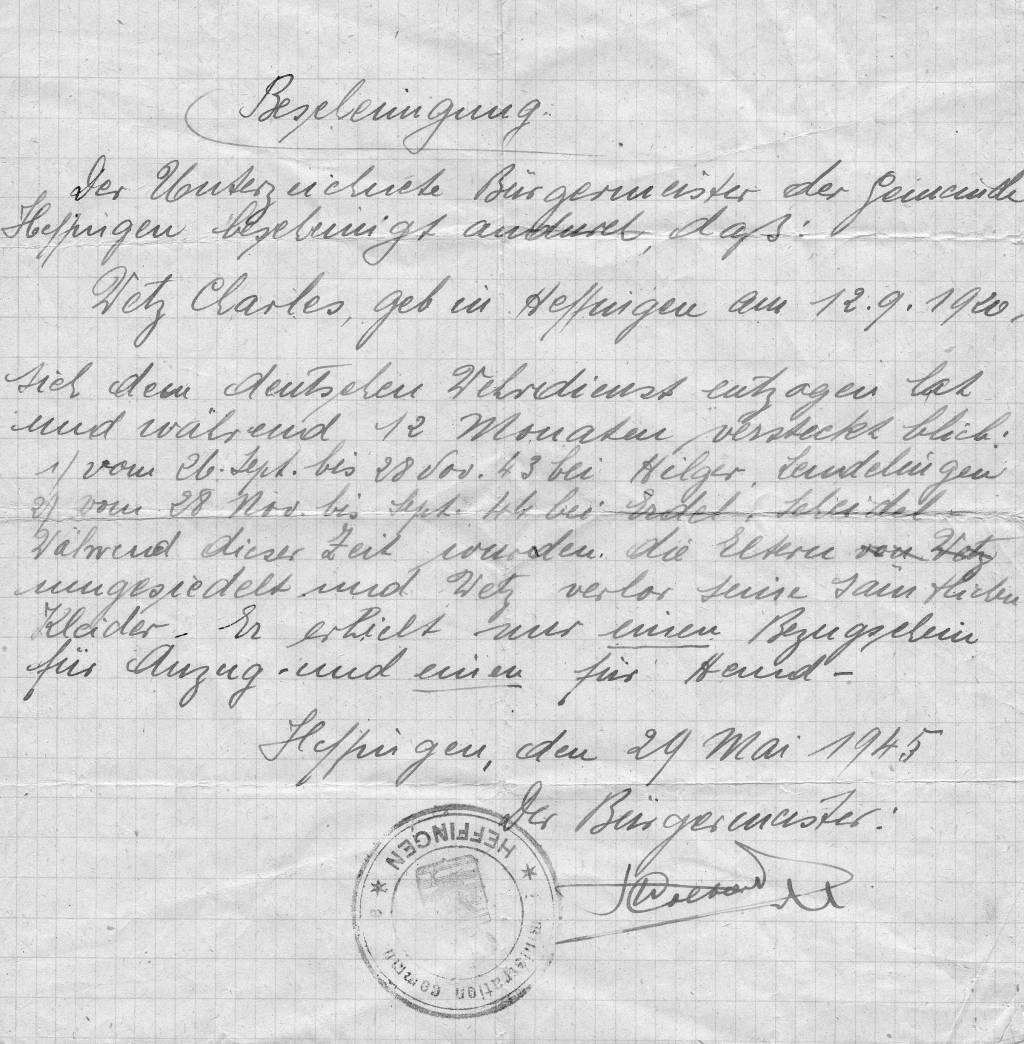 Bescheinigung.
Der Unterzeichnete Bürgermeister der Gemeinde
Heffingen bescheinigt andurch, daß:
Wetz Charles, geb in Heffingen am 12.9.1920,
sich dem deutschen Wehrdienst entzogen hat
und während 12 Monaten versteckt blieb:
1) vom 26. Sept. bis 28 Nov. 43 bei Hilger,
2) vom 28 Nov. bis Sept. 44 bei Scheidel -
Während dieser Zeit wurden die Eltern von Wetz
umgesiedelt und Wetz verlor seine sämtlichen
Kleider - Er erhielt nur einen Bezugschein
für Anzug - und einen für Hemd -
Heffingen, den 29 Mai 1945
Der Bürgermeister:
HEFFINGEN